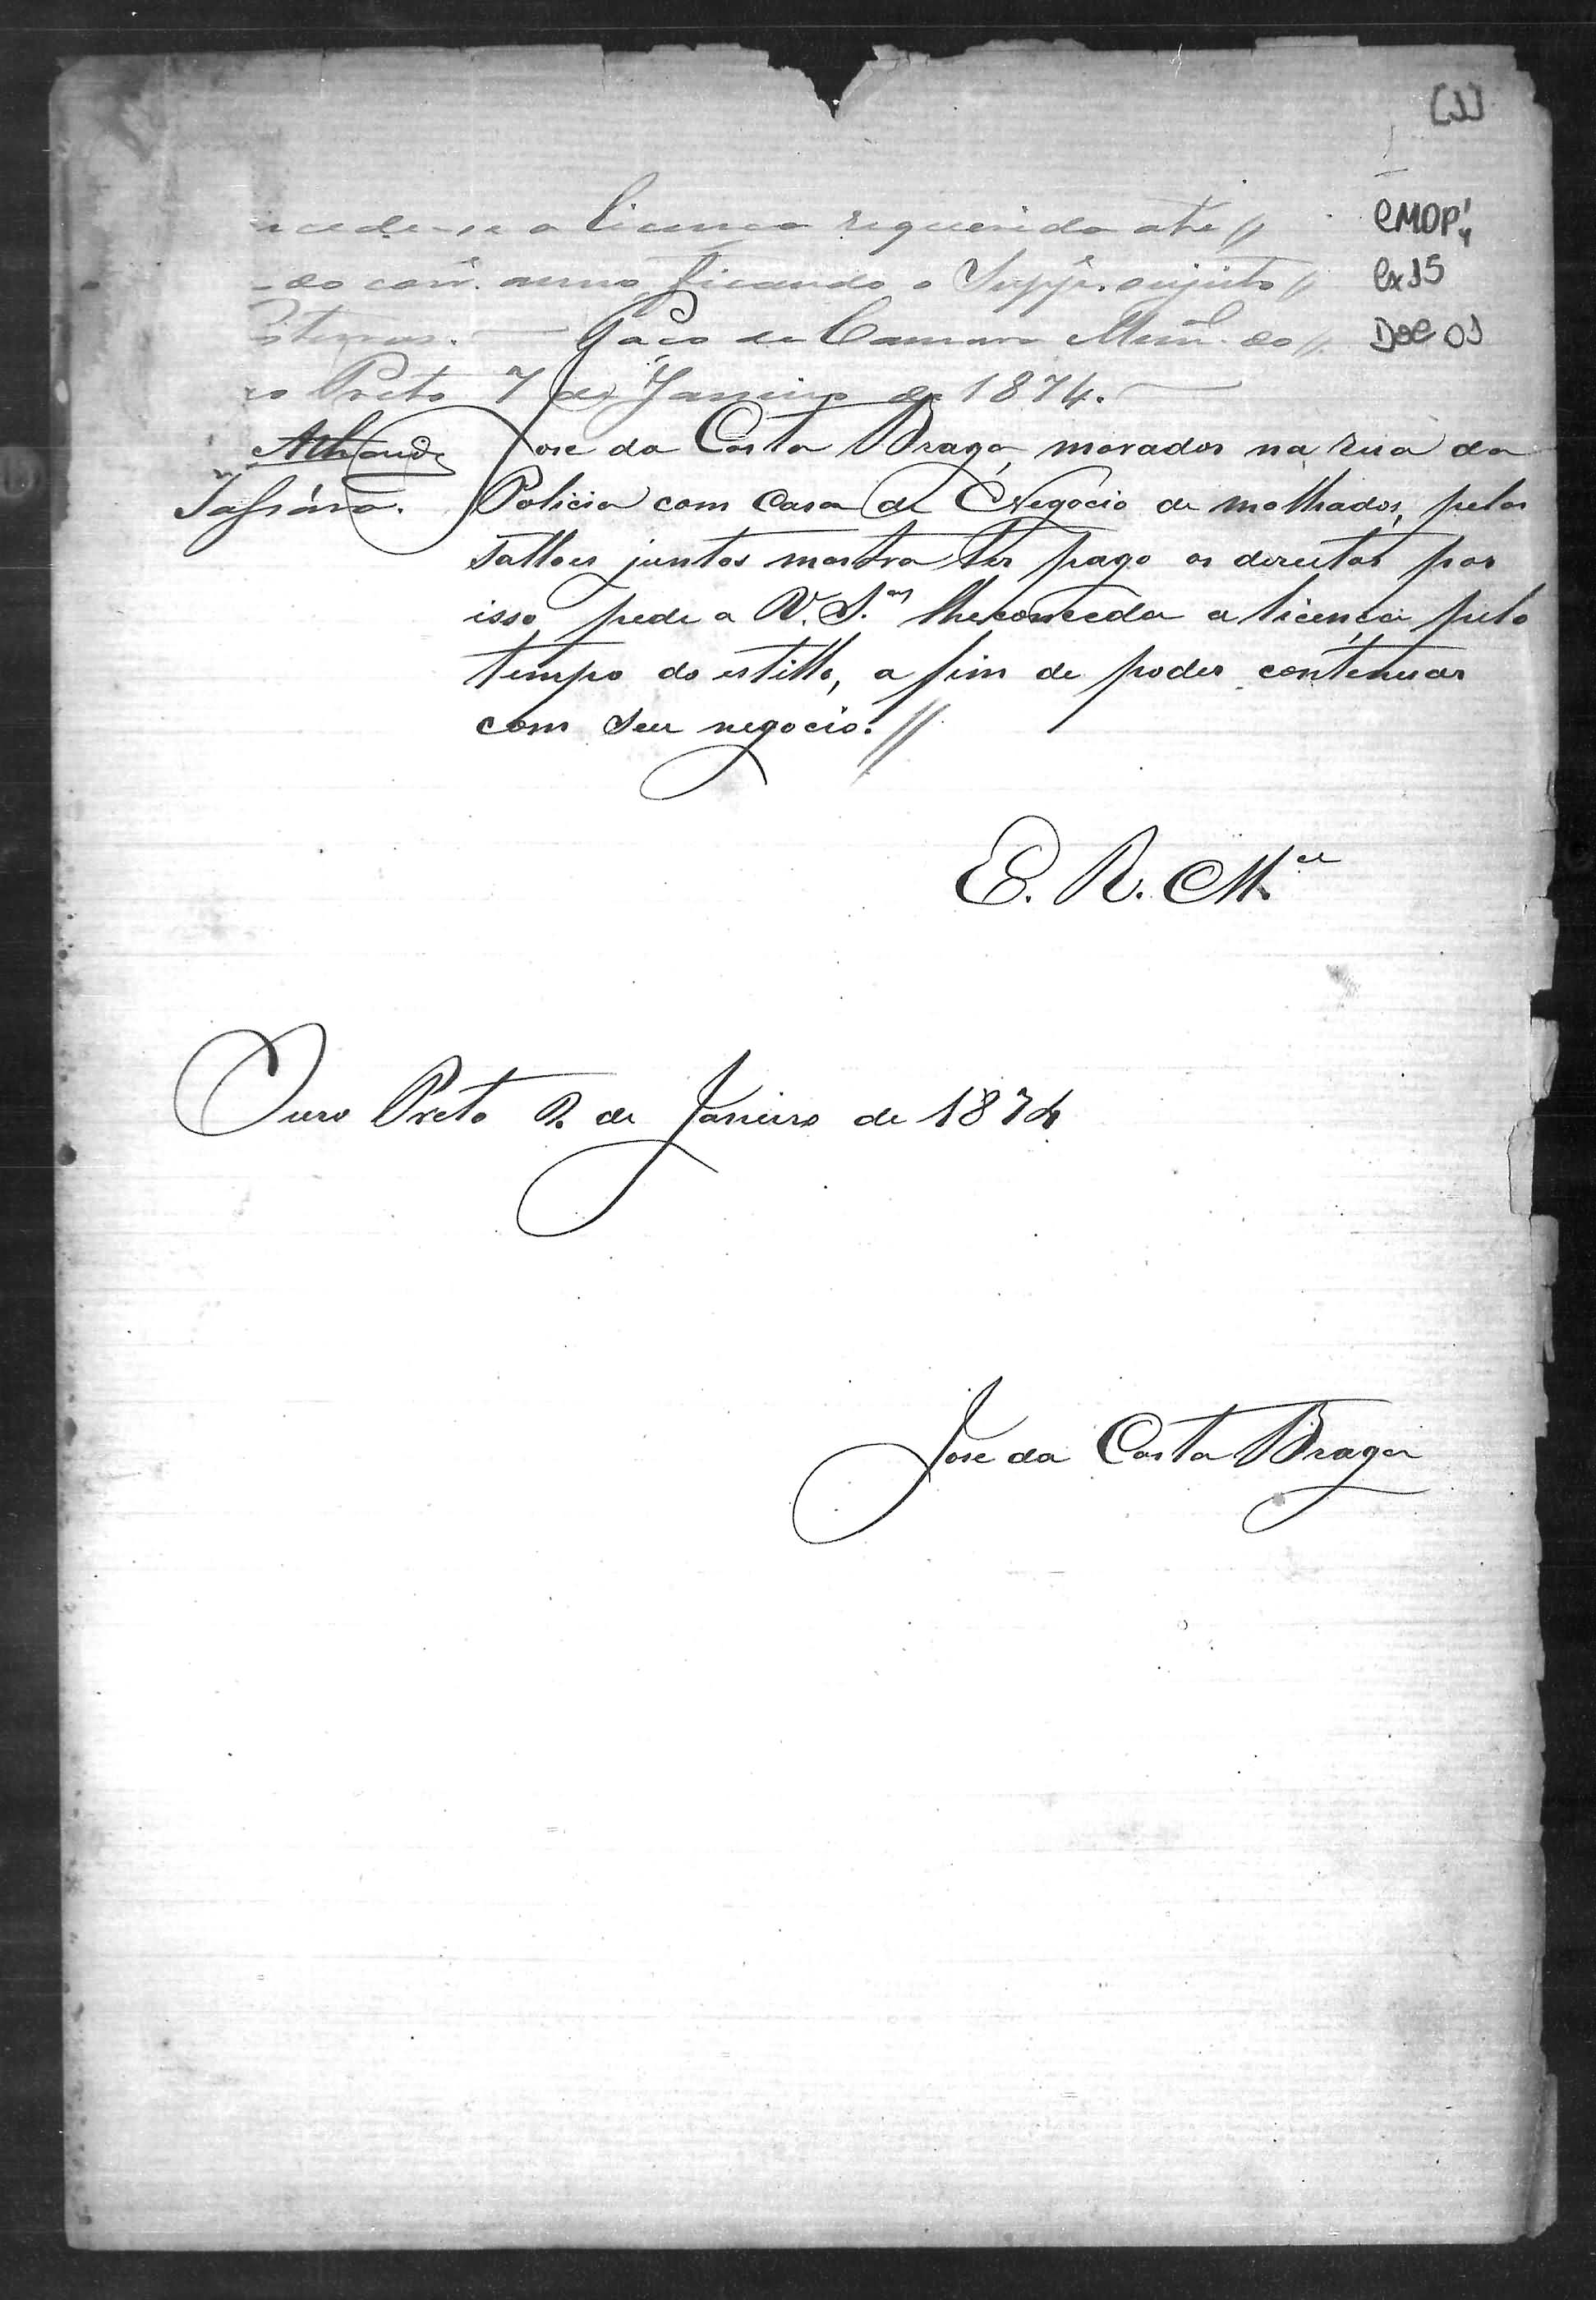 [1]
CMOP
Cx 15
Doc 01
cede-se a licença requerida até
do corr. anno ficando o Supp.e sujeito
Posturas. Paço da Camara Mun. do
ro Preto 7 de Janeiro de 1874.
Jose da Costa Braga, morador na rua da
Policia com Casa de Negocio de molhados, pelos
talloes juntos mostra ter pago os direitos por
isso pede a V. S.as lhe conceda a licença pelo
tempo do estillo, a fim de poder contenuar
com seu negocio.
E. R. M.ce
Ouro Preto 2. de Janeiro de 1874
Jose da Costa Braga